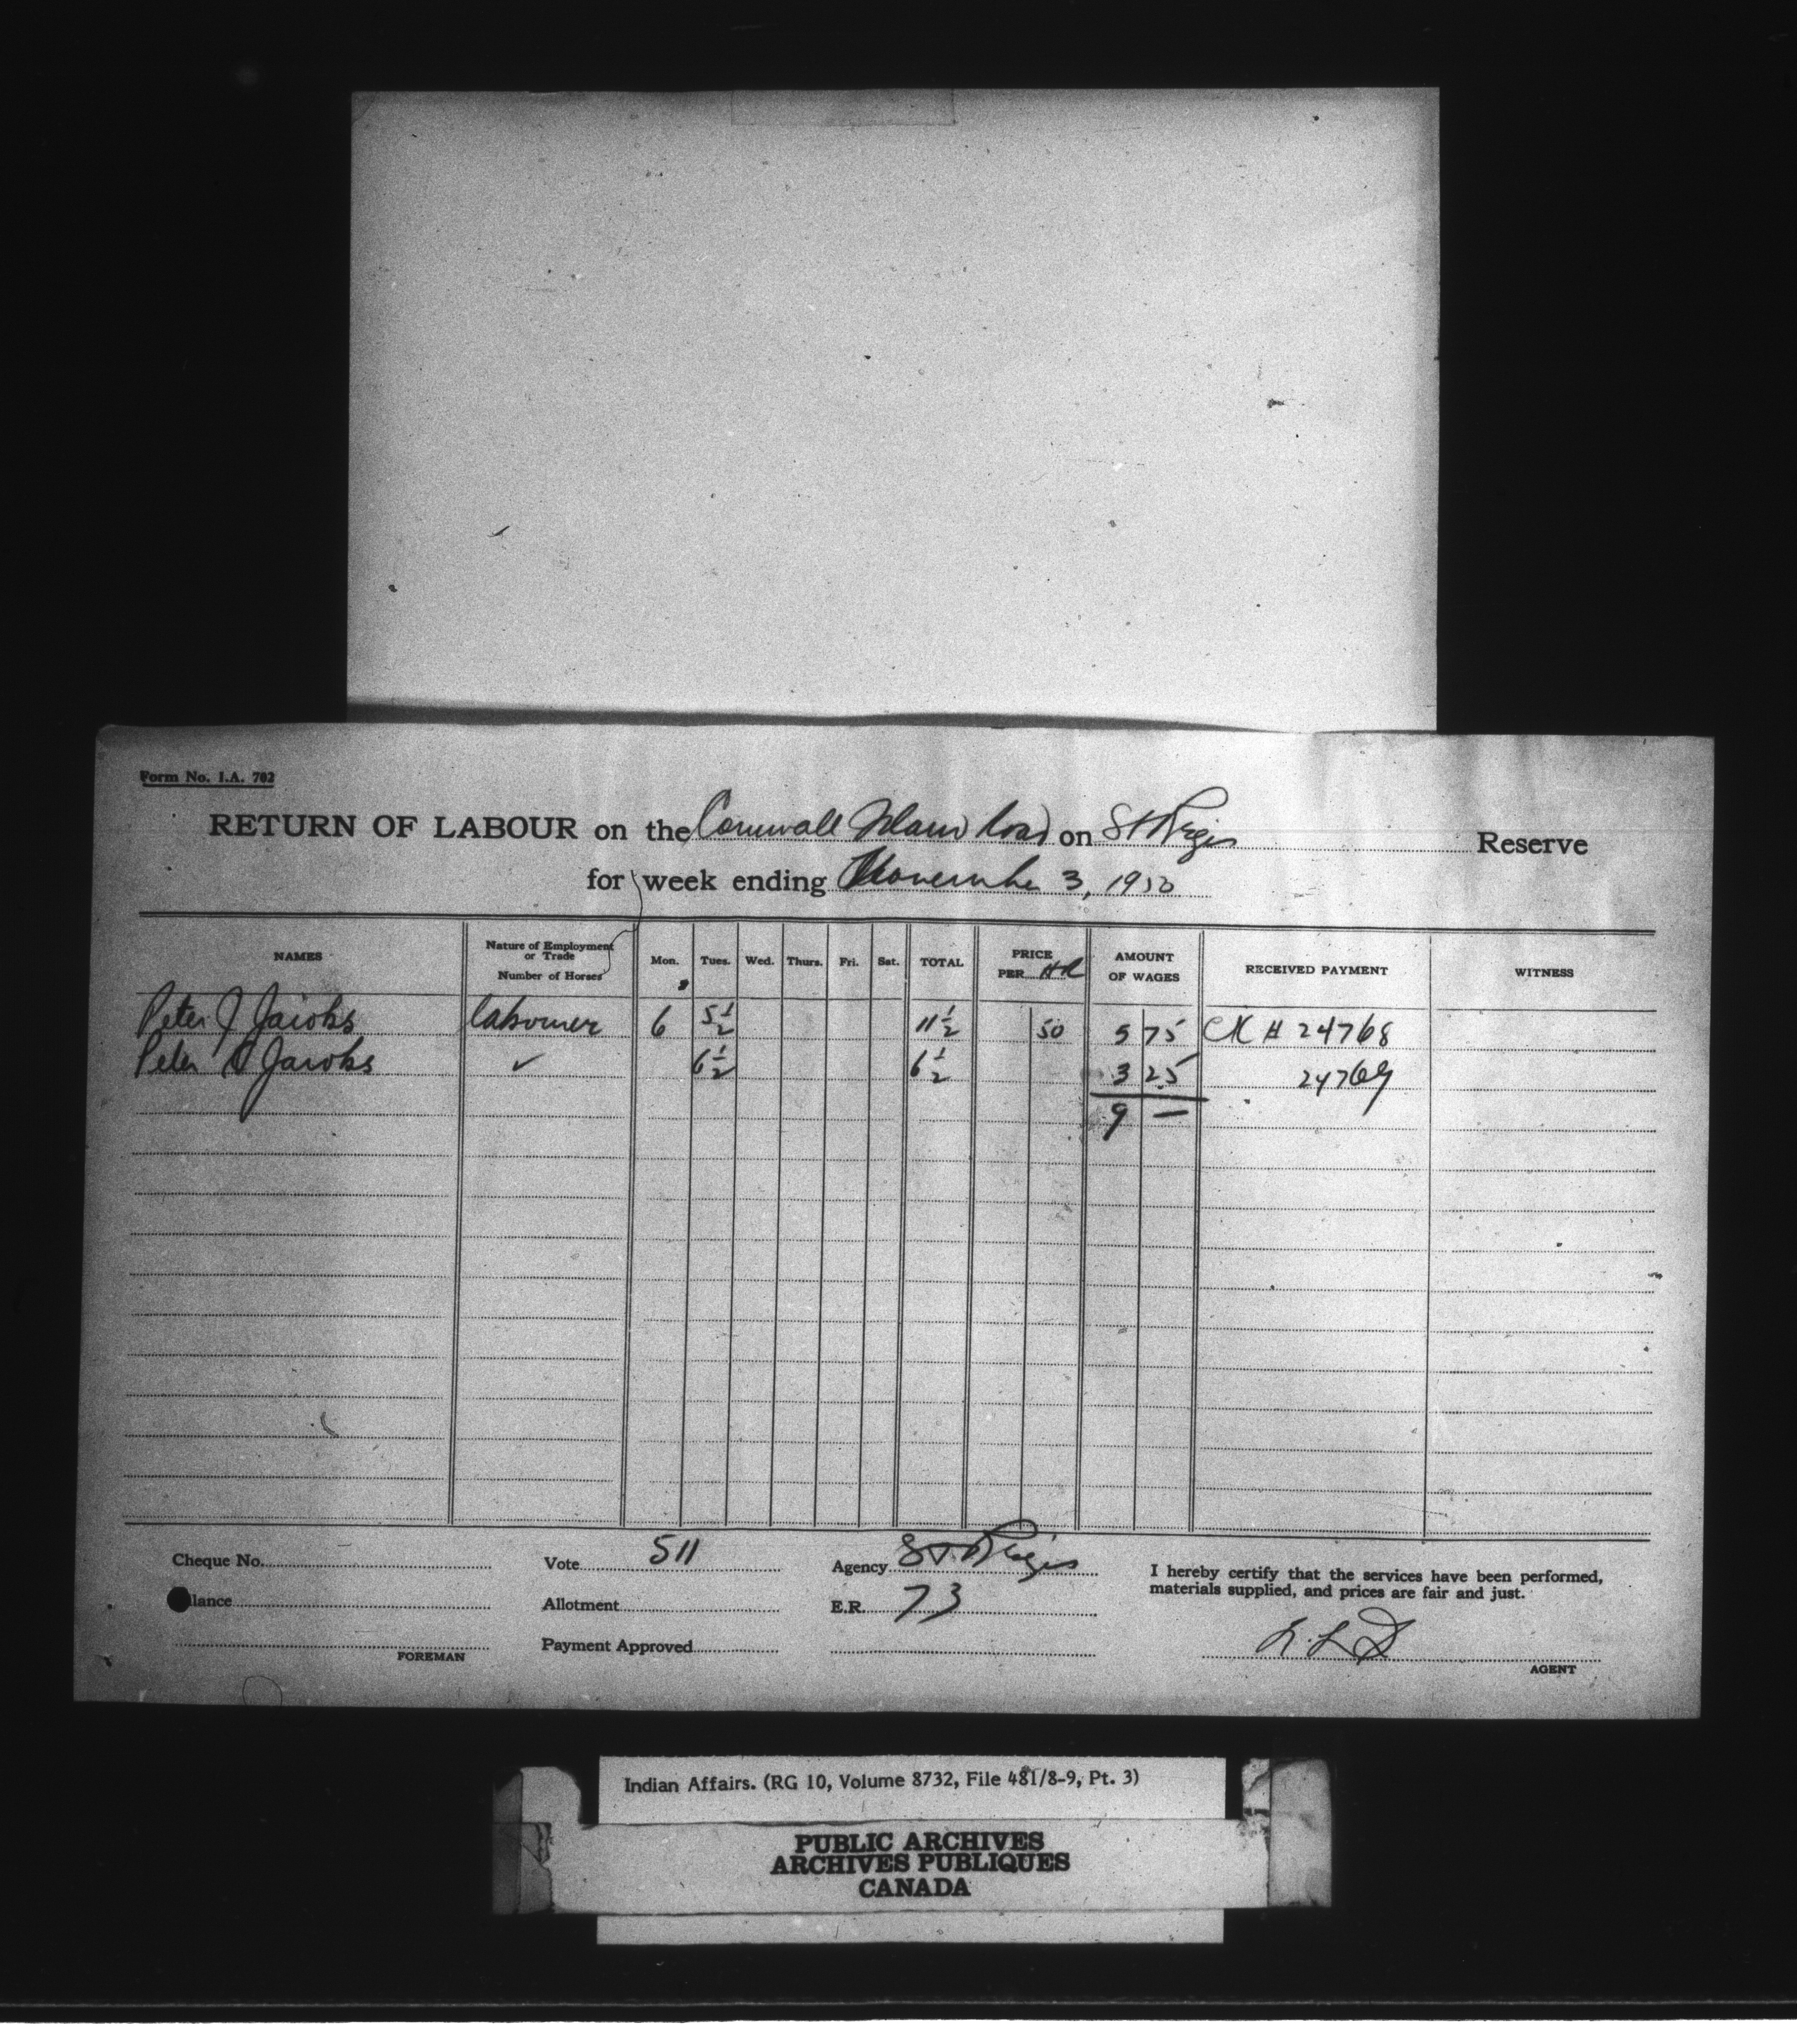 Form No. I.A. 702
RETURN OF LABOUR on the Cornwall Island Road on St Regis Reserve
for week ending November 3, 1950
NAMES Nature of Employment or Trade Number of Horses Mon. Tues. Wed. Thurs. Fri. Sat. TOTAL PRICE PER HR AMOUNT OF WAGES RECEIVED PAYMENT WITNESS
Peter J Jacobs labourer 6 5½ 11½ 50 5 75 CK # 24768
Peter Jacobs ✓ 6½ 6½ 3 25 24769
9 —
Cheque No. Vote 511 Agency St. Regis
lance Allotment E.R. 73
FOREMAN Payment Approved
I hereby certify that the services have been performed,
materials supplied, and prices are fair and just.
AGENT
Indian Affairs. (RG 10, Volume 8732, File 481/8-9, Pt. 3)
PUBLIC ARCHIVES
ARCHIVES PUBLIQUES
CANADA